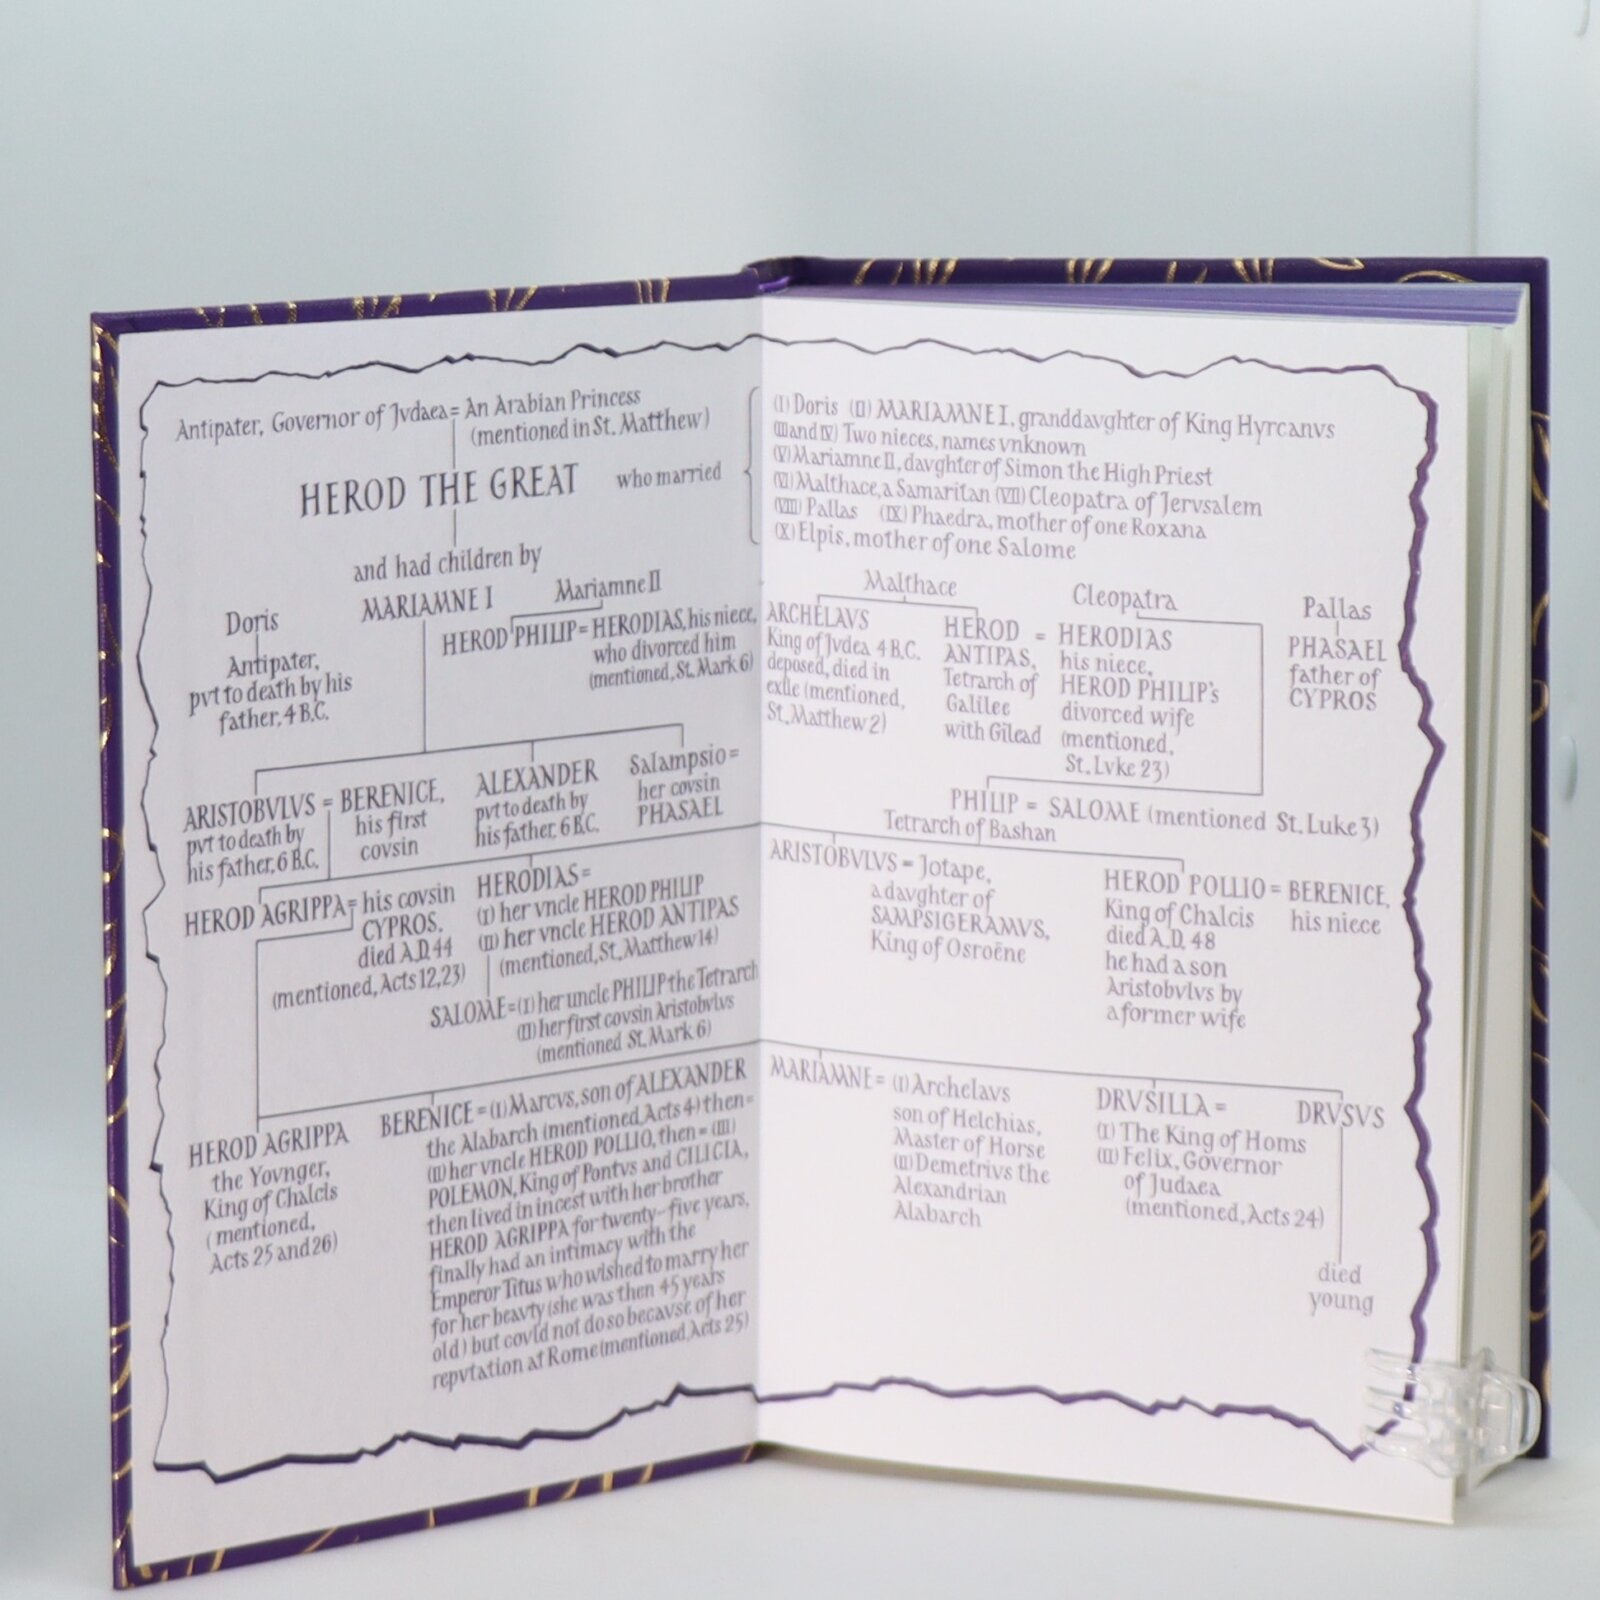 Antipater, Governor of Jvdaea = An Arabian Princess
(mentioned in St. Matthew)
HEROD THE GREAT who married
(I) Doris (II) MARIAMNE I, granddavghter of King Hyrcanvs
(III and IV) Two nieces, names vnknown
(V) Mariamne II, davghter of Simon the High Priest
(VI) Malthace, a Samaritan (VII) Cleopatra of Jervsalem
(VIII) Pallas (IX) Phaedra, mother of one Roxana
(X) Elpis, mother of one Salome
and had children by
Doris
Antipater,
pvt to death by his
father, 4 B.C.
MARIAMNE I
Mariamne II
HEROD PHILIP = HERODIAS, his niece,
who divorced him
(mentioned, St. Mark 6)
Malthace
ARCHELAVS
King of Jvdea 4 B.C.
deposed, died in
exile (mentioned,
St. Matthew 2)
HEROD =
ANTIPAS,
Tetrarch of
Galilee
with Gilead
HERODIAS
his niece,
HEROD PHILIP's
divorced wife
(mentioned,
St. Lvke 23)
Cleopatra
Pallas
PHASAEL
father of
CYPROS
PHILIP = SALOME (mentioned St. Luke 3)
Tetrarch of Bashan
ARISTOBVLVS =
pvt to death by
his father, 6 B.C.
BERENICE,
his first
covsin
ALEXANDER
pvt to death by
his father, 6 B.C.
Salampsio =
her covsin
PHASAEL
HEROD AGRIPPA = his covsin
CYPROS.
died A.D. 44
(mentioned, Acts 12, 23)
HERODIAS =
(I) her vncle HEROD PHILIP
(II) her vncle HEROD ANTIPAS
(mentioned, St. Matthew 14)
SALOME = (I) her uncle PHILIP the Tetrarch
(II) her first covsin Aristobvlvs
(mentioned St. Mark 6)
ARISTOBVLVS = Jotape,
a davghter of
SAMPSIGERAMVS,
King of Osroëne
HEROD POLLIO = BERENICE,
King of Chalcis his niece
died A.D. 48
he had a son
Aristobvlvs by
a former wife
HEROD AGRIPPA
the Yovnger,
King of Chalcis
(mentioned,
Acts 25 and 26)
BERENICE = (I) Marcvs, son of ALEXANDER
the Alabarch (mentioned, Acts 4) then =
(II) her vncle HEROD POLLIO, then = (III)
POLEMON, King of Pontvs and CILICIA,
then lived in incest with her brother
HEROD AGRIPPA for twenty-five years,
finally had an intimacy with the
Emperor Titus who wished to marry her
for her beavty (she was then 45 years
old) but covld not do so becavse of her
repvtation at Rome (mentioned, Acts 25)
MARIAMNE = (I) Archelavs
son of Helchias,
Master of Horse
(II) Demetrivs the
Alexandrian
Alabarch
DRVSILLA =
(I) The King of Homs
(II) Felix, Governor
of Judaea
(mentioned, Acts 24)
DRVSVS
died
young